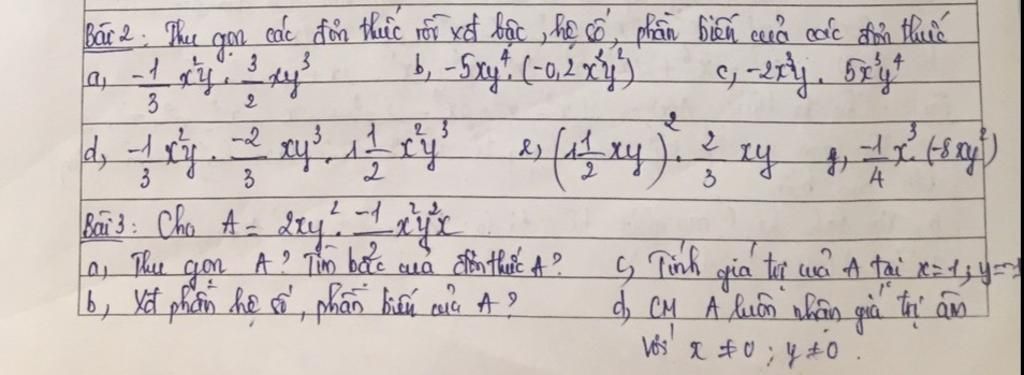 Bài 2: Thu gọn các đơn thức rồi xét bậc, hệ số, phần biến của các đơn thức
a, -1/3 x²y . 3/2 xy³ b, -5xy⁴. (-0,2x²y²) c, -2x³y . 5x³y⁴
d, -1/3 x²y . -2/3 xy³ . 1 1/2 x²y³ e, (1 1/2 xy)² . 2/3 xy g, -1/4 x³. (-8xy²)
Bài 3: Cho A = 2xy² . -1 x²y²x
a, Thu gọn A? Tìm bậc của đơn thức A? c, Tính giá trị của A tại x=1; y=-1
b, Xét phần hệ số, phần biến của A? d, CM A luôn nhận giá trị âm
với x ≠ 0 ; y ≠ 0.